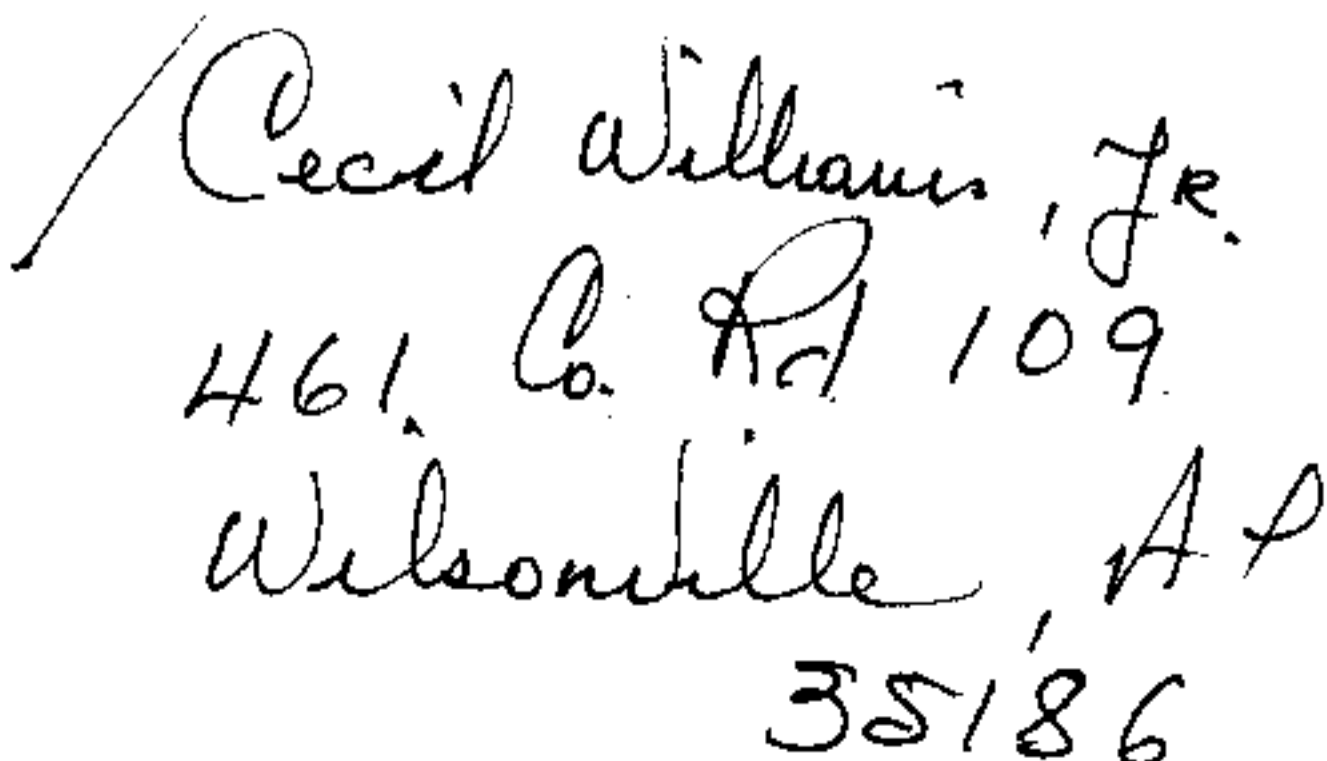 Cecil Williams, Jr.
461 Co. Rd 109
Wilsonville, Al
35186